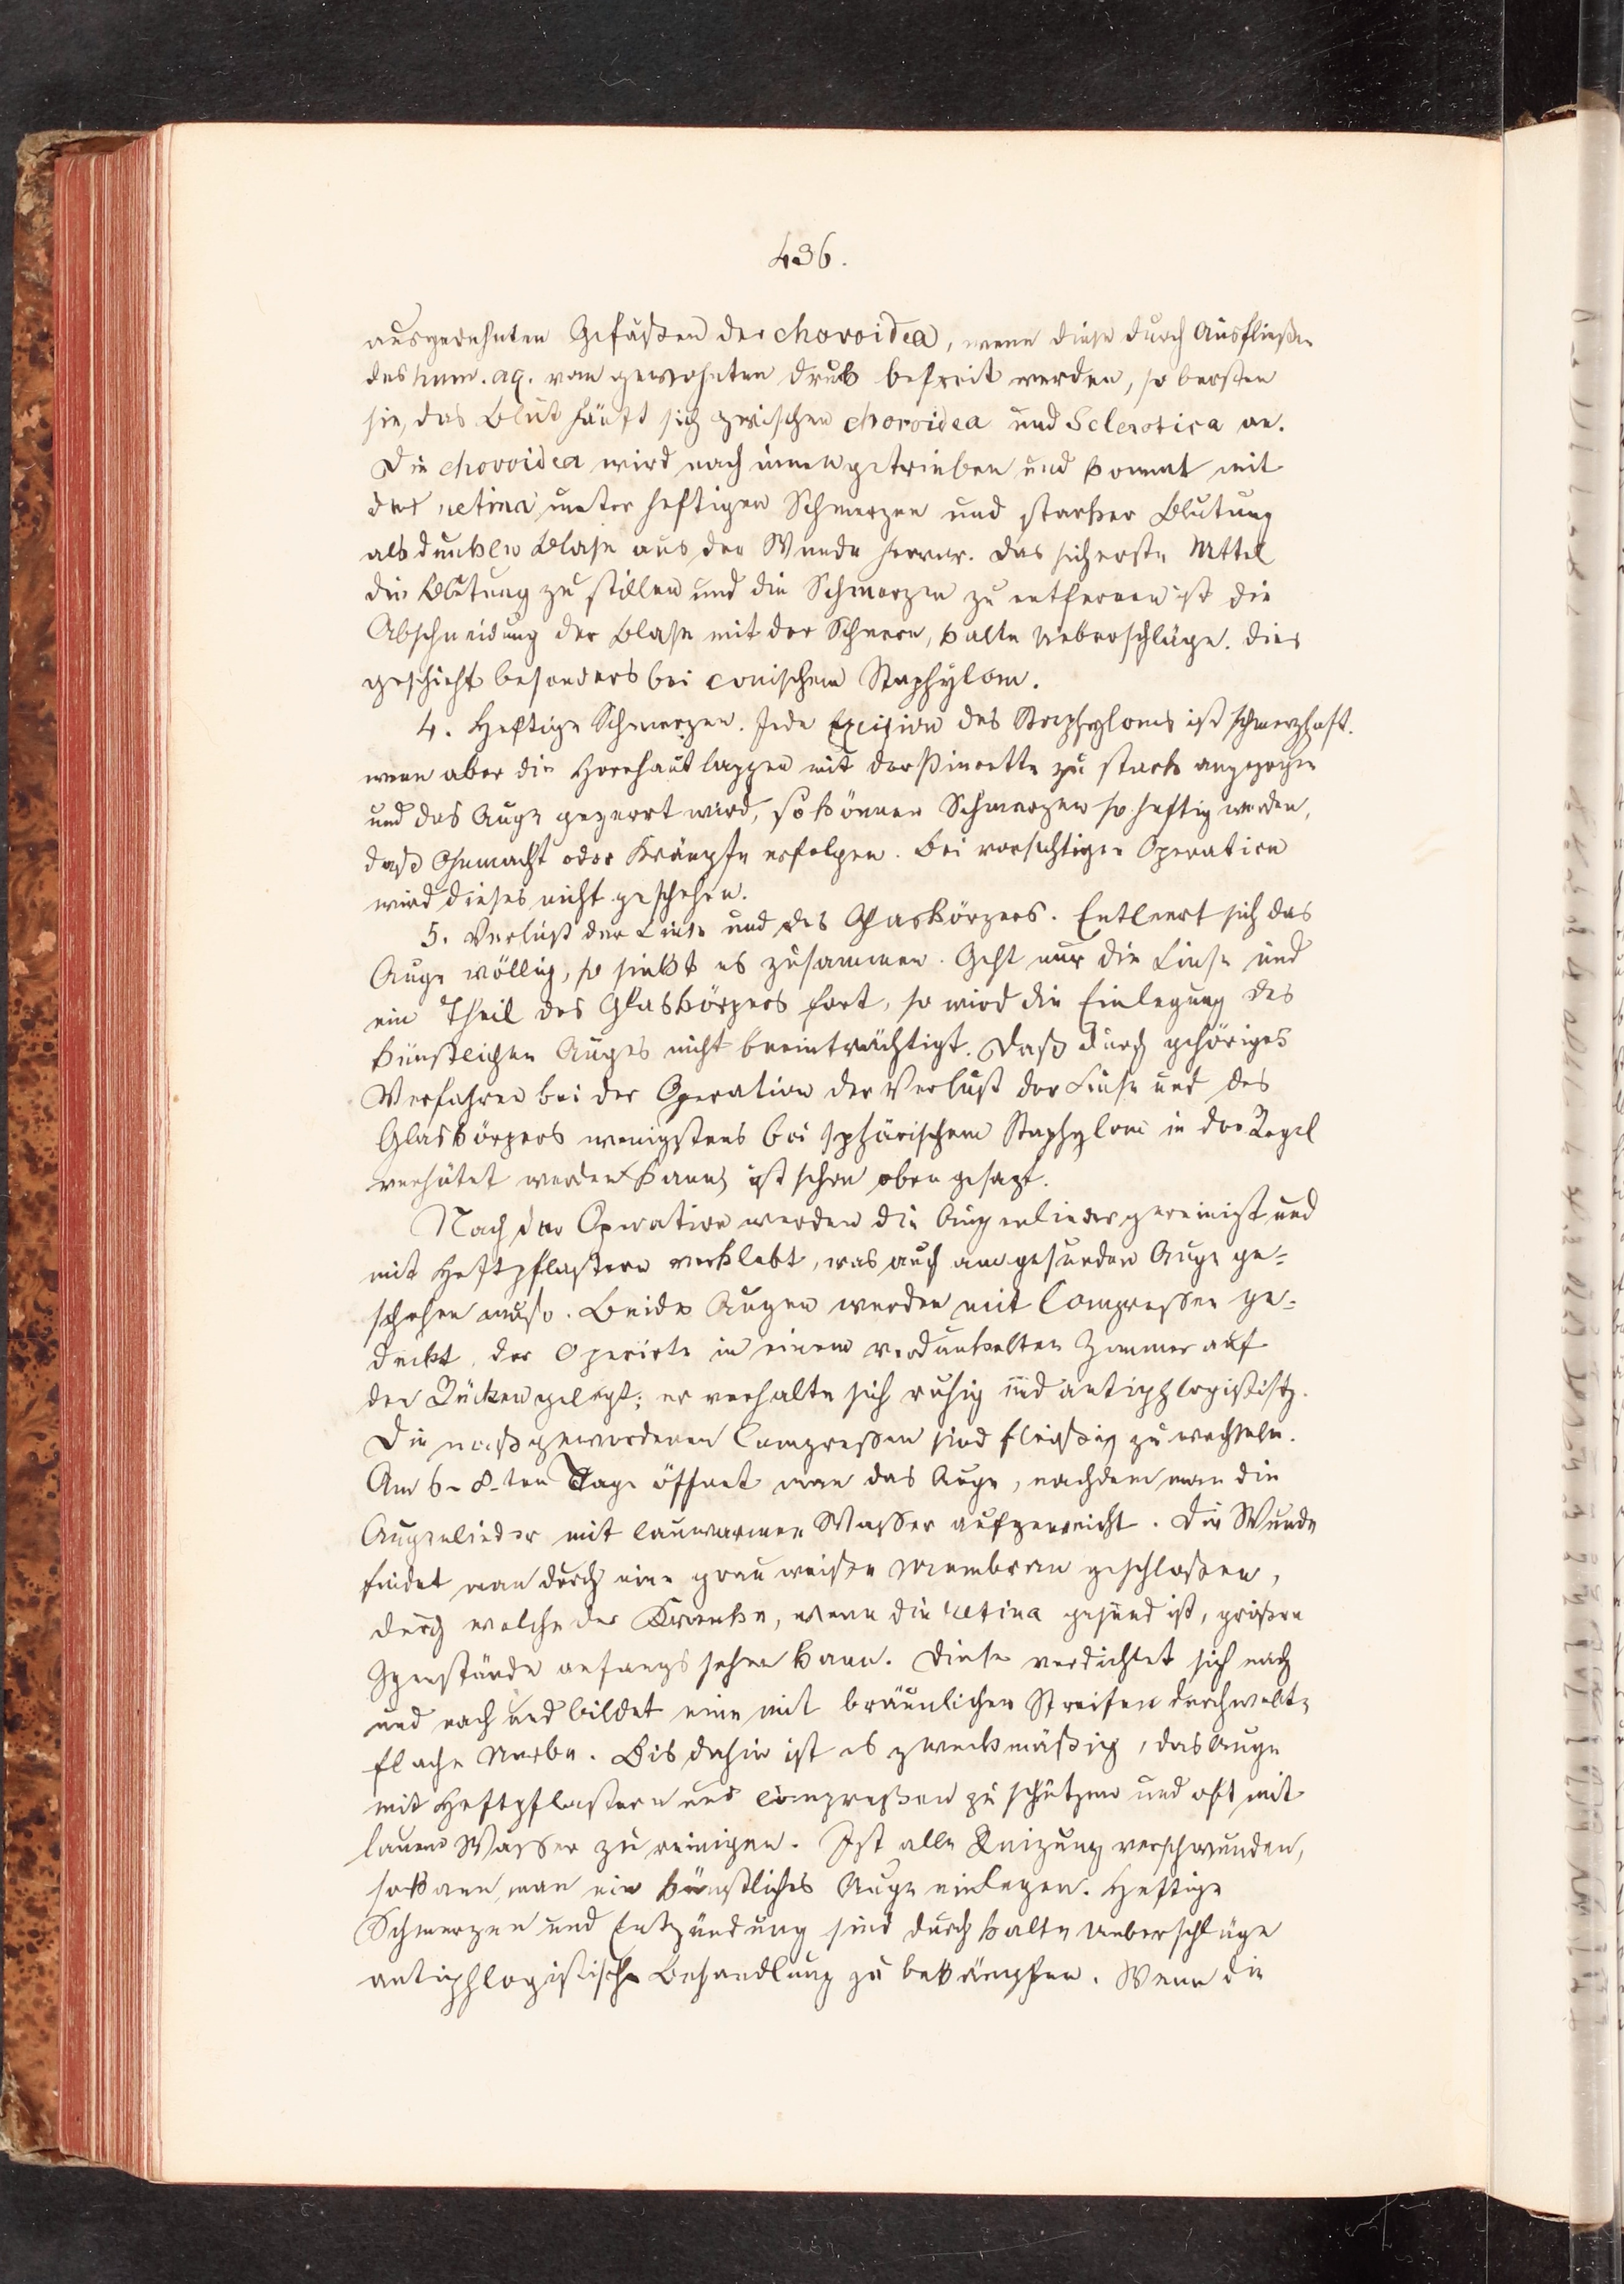 436.
ausgedehnten Gefäßen der choroidea, wenn diese durch Ausfließen
des hum. aq. vom gewohnten Druk befreit werden, so bersten
sie, das Blut häuft sich zwischen choroidea und Sclerotica an.
Die choroidea wird nach innen getrieben und kommt mit
der retina unter heftigen Schmerzen und starker Blutung
als dunkler Blase aus der Wunde hervor. Das sicherste Mittel
die Blutung zu stillen und die Schmerzen zu entfernen ist die
Abschneidung der Blase mit der Scheere, kalte Ueberschläge. Dies
geschieht besonders bei conischem Staphylom.
4. Heftige Schmerzen. Jede Excision des Staphyloms ist schmerzhaft.
wenn aber die Hornhautlappen mit der Pincette zu stark angezogen
und das Auge gezerrt wird, so können Schmerzen so heftig werden,
daß Ohnmacht oder Krämpfe erfolgen. Bei vorsichtiger Operation
wird dieses nicht geschehen.
5. Verlust der Linse und des Glaskörpers. Entleert sich das
Auge völlig, so sinkt es zusammen. Geht nur die Linse und
ein Theil des Glaskörpers fort, so wird die Einlegung des
künstlichen Auges nicht beeinträchtigt. Daß durch gehöriges
Verfahren bei der Operation der Verlust der Linse und des
Glaskörpers wenigstens bei sphärischem Staphylom in der Regel
verhütet werden kann, ist schon oben gesagt.
Nach der Operation werden die Augenlieder gereinigt und
mit Heftpflastern verklebt, was auch am gesunden Auge ge-
schehen muß. Beide Augen werden mit Compressen ge-
deckt, der Operirte in einem verdunkelten Zimmer auf
den Rücken gelegt; er verhalte sich ruhig und antiphlogistisch.
Die naßgewordenen Compressen sind fleißig zu wechseln.
Am 6-8-ten Tage öffnet man das Auge, nachdem man die
Augenlieder mit lauwarmen Wasser aufgeweicht. Die Wunde
findet man durch eine grau weiße Membran geschloßen,
durch welche der Kranke, wenn die retina gesund ist, größere
Genstände anfangs sehen kann. Diese verdichtet sich nach
und nach und bildet eine mit bräunlichen Streifen durchwebte
flache Narbe. Bis dahin ist es zweckmäßig, das Auge
mit Heftpflastern und Compreßen zu schützen und oft mit
lauem Wasser zu reinigen. Ist alle Reizung verschwunden,
so kann man ein künstliches Auge einlegen. Heftige
Schmerzen und Entzündung sind durch kalte Ueberschläge
antiphlogistische Behandlung zu bekämpfen. Wenn die